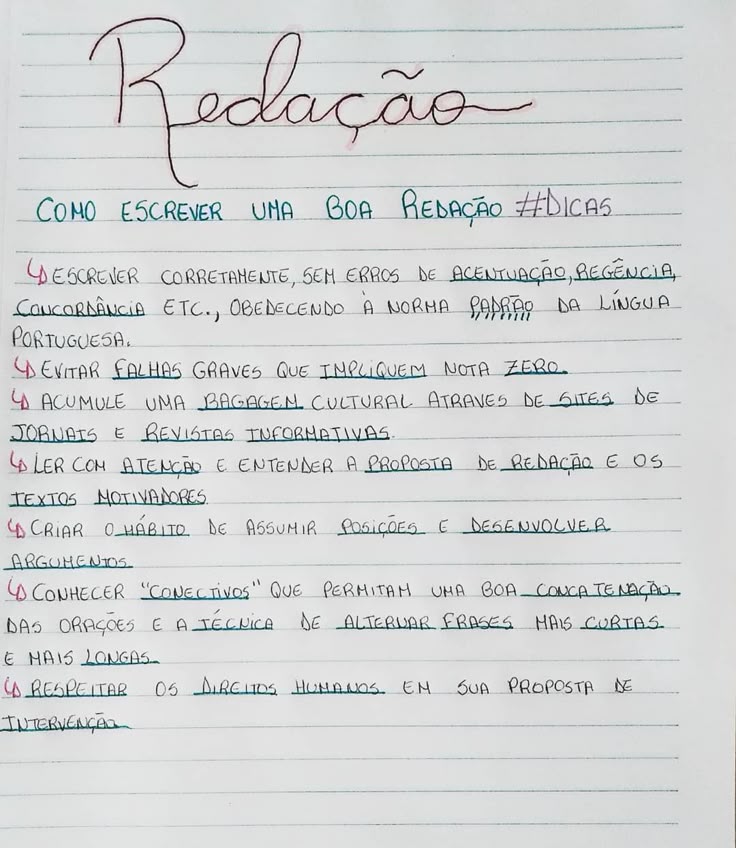 Redação
COMO ESCREVER UMA BOA REDAÇÃO #DICAS
ESCREVER CORRETAMENTE, SEM ERROS DE ACENTUAÇÃO, REGÊNCIA,
CONCORDÂNCIA ETC., OBEDECENDO À NORMA PADRÃO DA LÍNGUA
PORTUGUESA.
EVITAR FALHAS GRAVES QUE IMPLIQUEM NOTA ZERO.
ACUMULE UMA BAGAGEM CULTURAL ATRAVES DE SITES DE
JORNAIS E REVISTAS INFORMATIVAS.
LER COM ATENÇÃO E ENTENDER A PROPOSTA DE REDAÇÃO E OS
TEXTOS MOTIVADORES.
CRIAR O HÁBITO DE ASSUMIR POSIÇÕES E DESENVOLVER
ARGUMENTOS
CONHECER "CONECTIVOS" QUE PERMITAM UMA BOA CONCATENAÇÃO
DAS ORAÇÕES E A TÉCNICA DE ALTERNAR FRASES MAIS CURTAS
E MAIS LONGAS.
RESPEITAR OS DIREITOS HUMANOS EM SUA PROPOSTA DE
INTERVENÇÃO